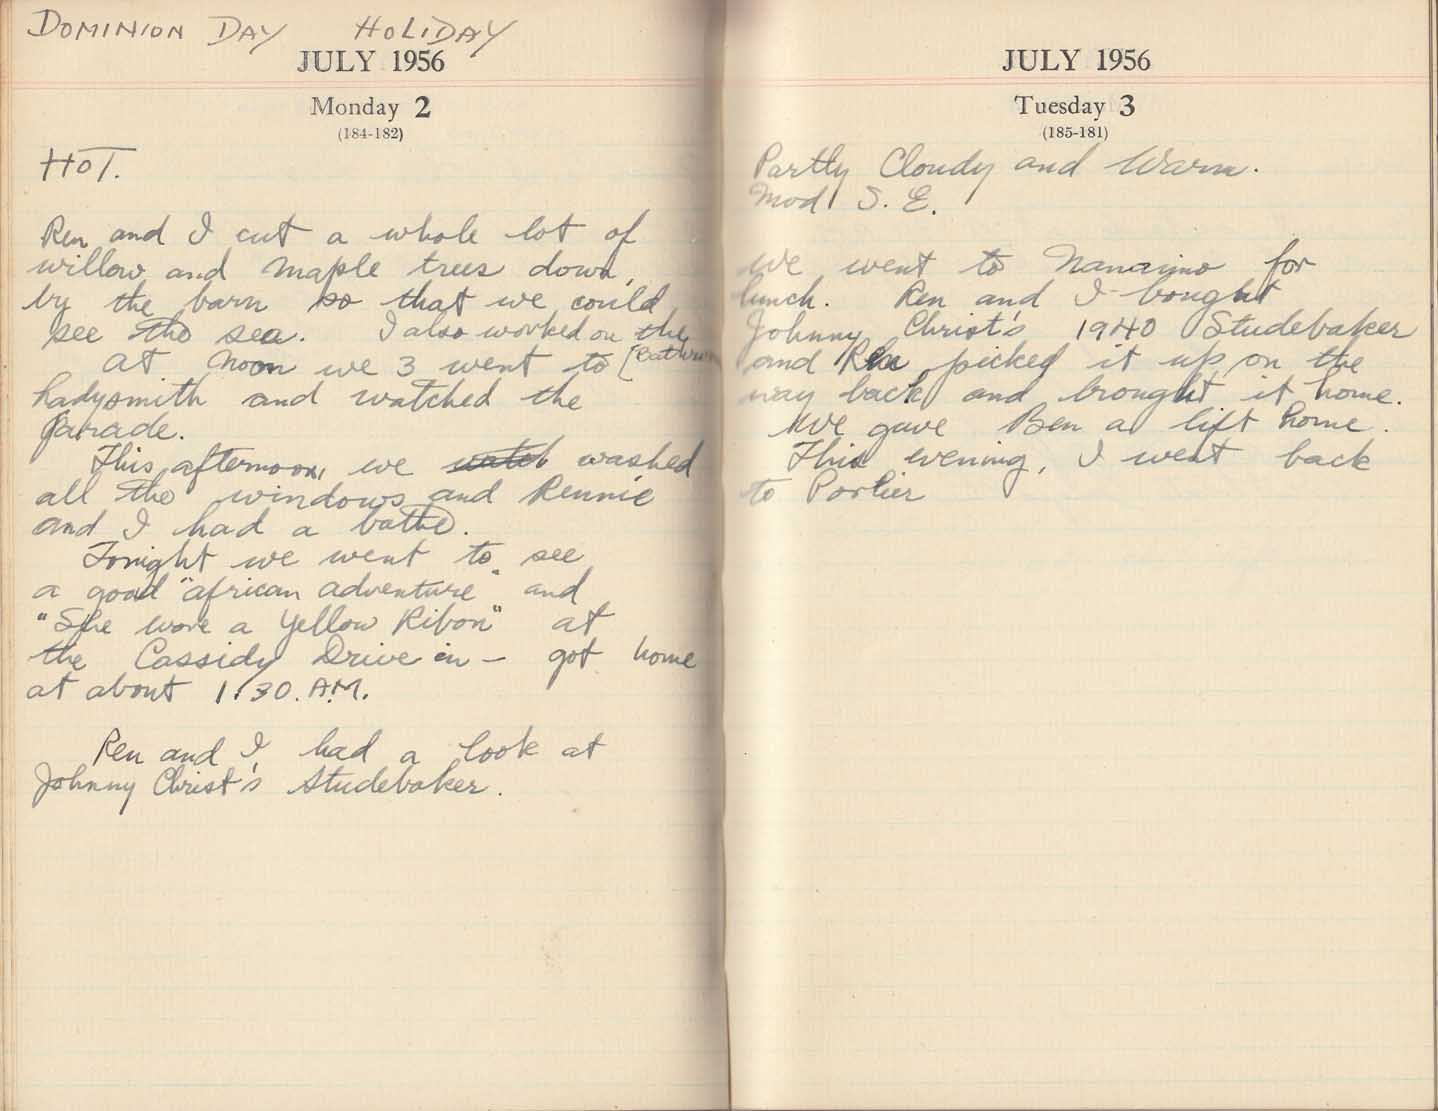 DOMINION DAY HOLIDAY
JULY 1956
Monday 2
(184-182)
HOT.
Ren and I cut a whole lot of
willow and maple trees down,
by the barn so that we could
see the sea. I also worked on the
At noon we 3 went to
Ladysmith and watched the
parade.
This afternoon, we watch washed
all the windows and Rennie
and I had a bathe.
Tonight we went to see
a good "african adventure" and
"She wore a Yellow Ribon" at
the Cassidy Drive in - got home
at about 1.30. A.M.
Ren and I had a look at
Johnny Christ's Studebaker.
JULY 1956
Tuesday 3
(185-181)
Partly Cloudy and Warm.
Mod S. E.
We went to Nanaimo for
lunch. Ren and I bought
Johnny Christ's 1940 Studebaker
and Ren picked it up on the
way back and brought it home.
We gave Ben a lift home.
This evening, I went back
to Porlier